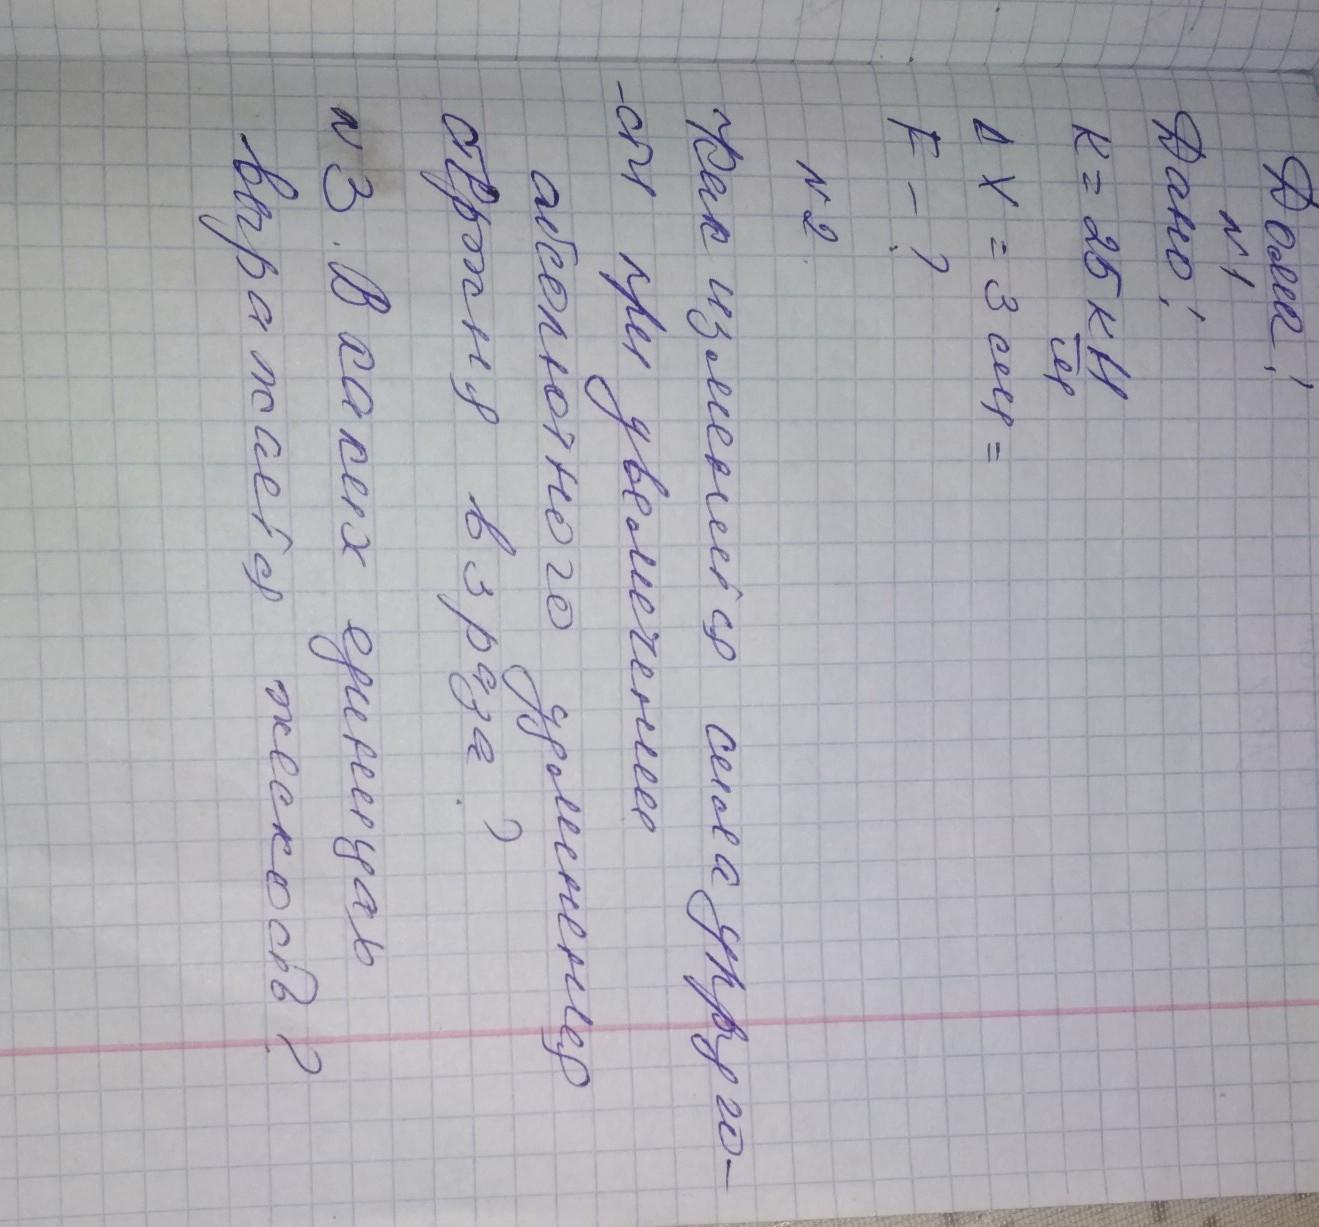 Дома:
№1
Дано:
K = 25 кН/м
Δ X = 3 мм =
F - ?
№2
Как изменится сила упруго-
-сти при увеличении
абсолютного удлинения
стержня в 3 раза?
№3. В каких единицах
выражается жескость?